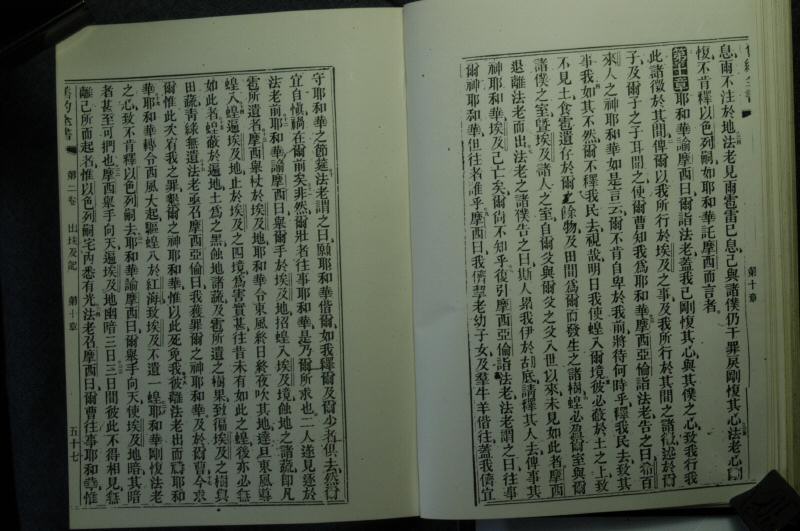 舊約全書
第十章
息雨不注於地法老見雨雹雷巳息己與諸僕仍干罪戾剛愎其心法老心剛
愎不肯釋以色列嗣如耶和華託摩西而言者
第十章耶和華諭摩西曰爾詣法老蓋我已剛愎其心與其僕之心致我行我
此諸徵於其間俾爾以我所行於埃及之事及我所行於其間之諸徵述於爾
子及爾子之子耳聞之使爾曹知我爲耶和華摩西亞倫詣法老告之曰希百
來人之神耶和華如是言云爾不肯自卑於我前將待何時乎釋我民去致其
事我如其不然爾不釋我民去視哉明日我使蝗入爾境彼必蔽於土之上致
不見土食雹遺存於爾之餘物及田間爲爾而發生之諸樹蝗必盈爾室與爾
諸僕之室曁埃及諸人之室自爾父與爾父之父入世以來未見如此者摩西
退離法老而出法老之諸僕告之曰斯人累我伊於胡底請釋其人去俾事其
神耶和華埃及已亡矣爾尙不知乎後引摩西亞倫詣法老法老謂之曰往事
爾神耶和華但往者誰乎摩西曰我儕挈老幼子女及羣牛羊偕往蓋我儕宜
守耶和華之節筵法老謂之曰願耶和華偕爾如我釋爾及爾少者俱去然爾
宜自愼禍在爾前矣非然爾壯者往事耶和華是乃爾所求也二人遂見逐於
法老前耶和華諭摩西曰舉爾手於埃及地招蝗入埃及境蝕地之諸蔬卽凡
雹所遺者摩西舉杖於埃及地耶和華令東風終日終夜吹其地達旦東風驅
蝗入蝗遍埃及地止於埃及之四境爲害實甚往昔未有如此之蝗後亦必無
如此者蝗蔽於遍地土爲之黑蝕地諸蔬及雹所遺之樹果致徧埃及之樹與
田蔬靑綠無遺法老亟召摩西亞倫曰我獲罪爾之神耶和華及於爾曹今求
爾惟此次宥我之罪懇爾之神耶和華惟以此死免我彼離法老出而籲耶和
華耶和華轉令西風大起驅蝗入於紅海致埃及不遺一蝗耶和華剛愎法老
之心致不肯釋以色列嗣去耶和華諭摩西曰爾舉手向天使埃及地暗其暗
者甚至可捫也摩西舉手向天遍埃及地幽暗三日三日間彼此不得相見無
離己所而起者惟以色列嗣宅內悉有光法老召摩西曰爾曹往事耶和華惟
舊約全書
第二卷
出埃及記
第十章
五十七